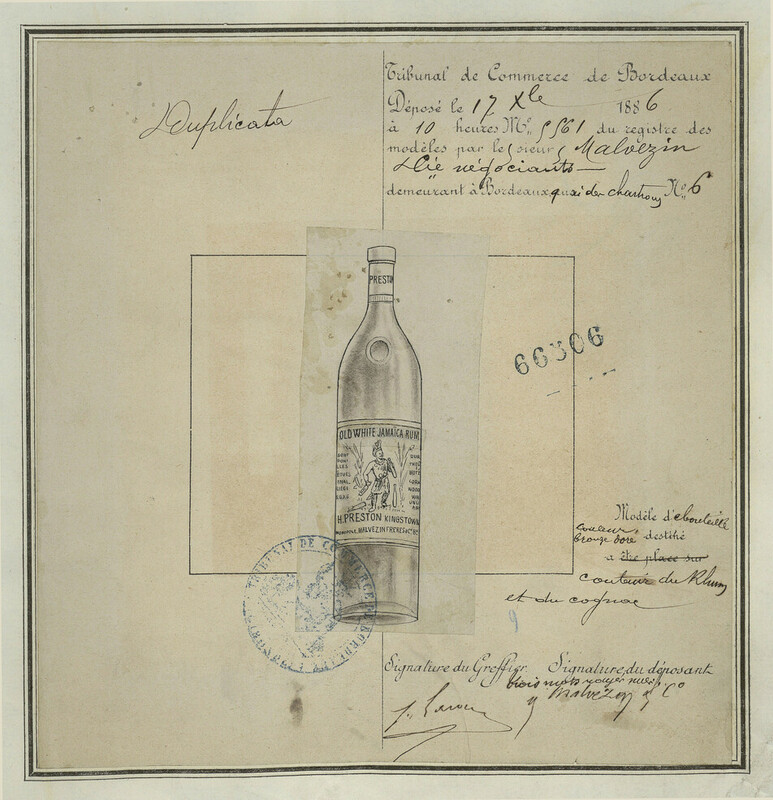 Duplicata
Tribunal de Commerce de Bordeaux
Déposé le 17 Xbe 1886
à 10 heures M. du registre des
modèles par le sieur Malvezin
& Cie négociants
demeurant à Bordeaux quai des chartrons No. 6
PRESTON
66306
OLD WHITE JAMAÏCA RUM
H. PRESTON KINGSTOWN
MALVEZIN FRERES & Co
Modèle de bouteille
couleur
bronze doré destiné
a être place sur
contenir du Rhum
et du cognac
9
TRIBUNAL DE COMMERCE
Signature du Greffier Signature du déposant
trois mots rayés nuls
Malvezin & Co